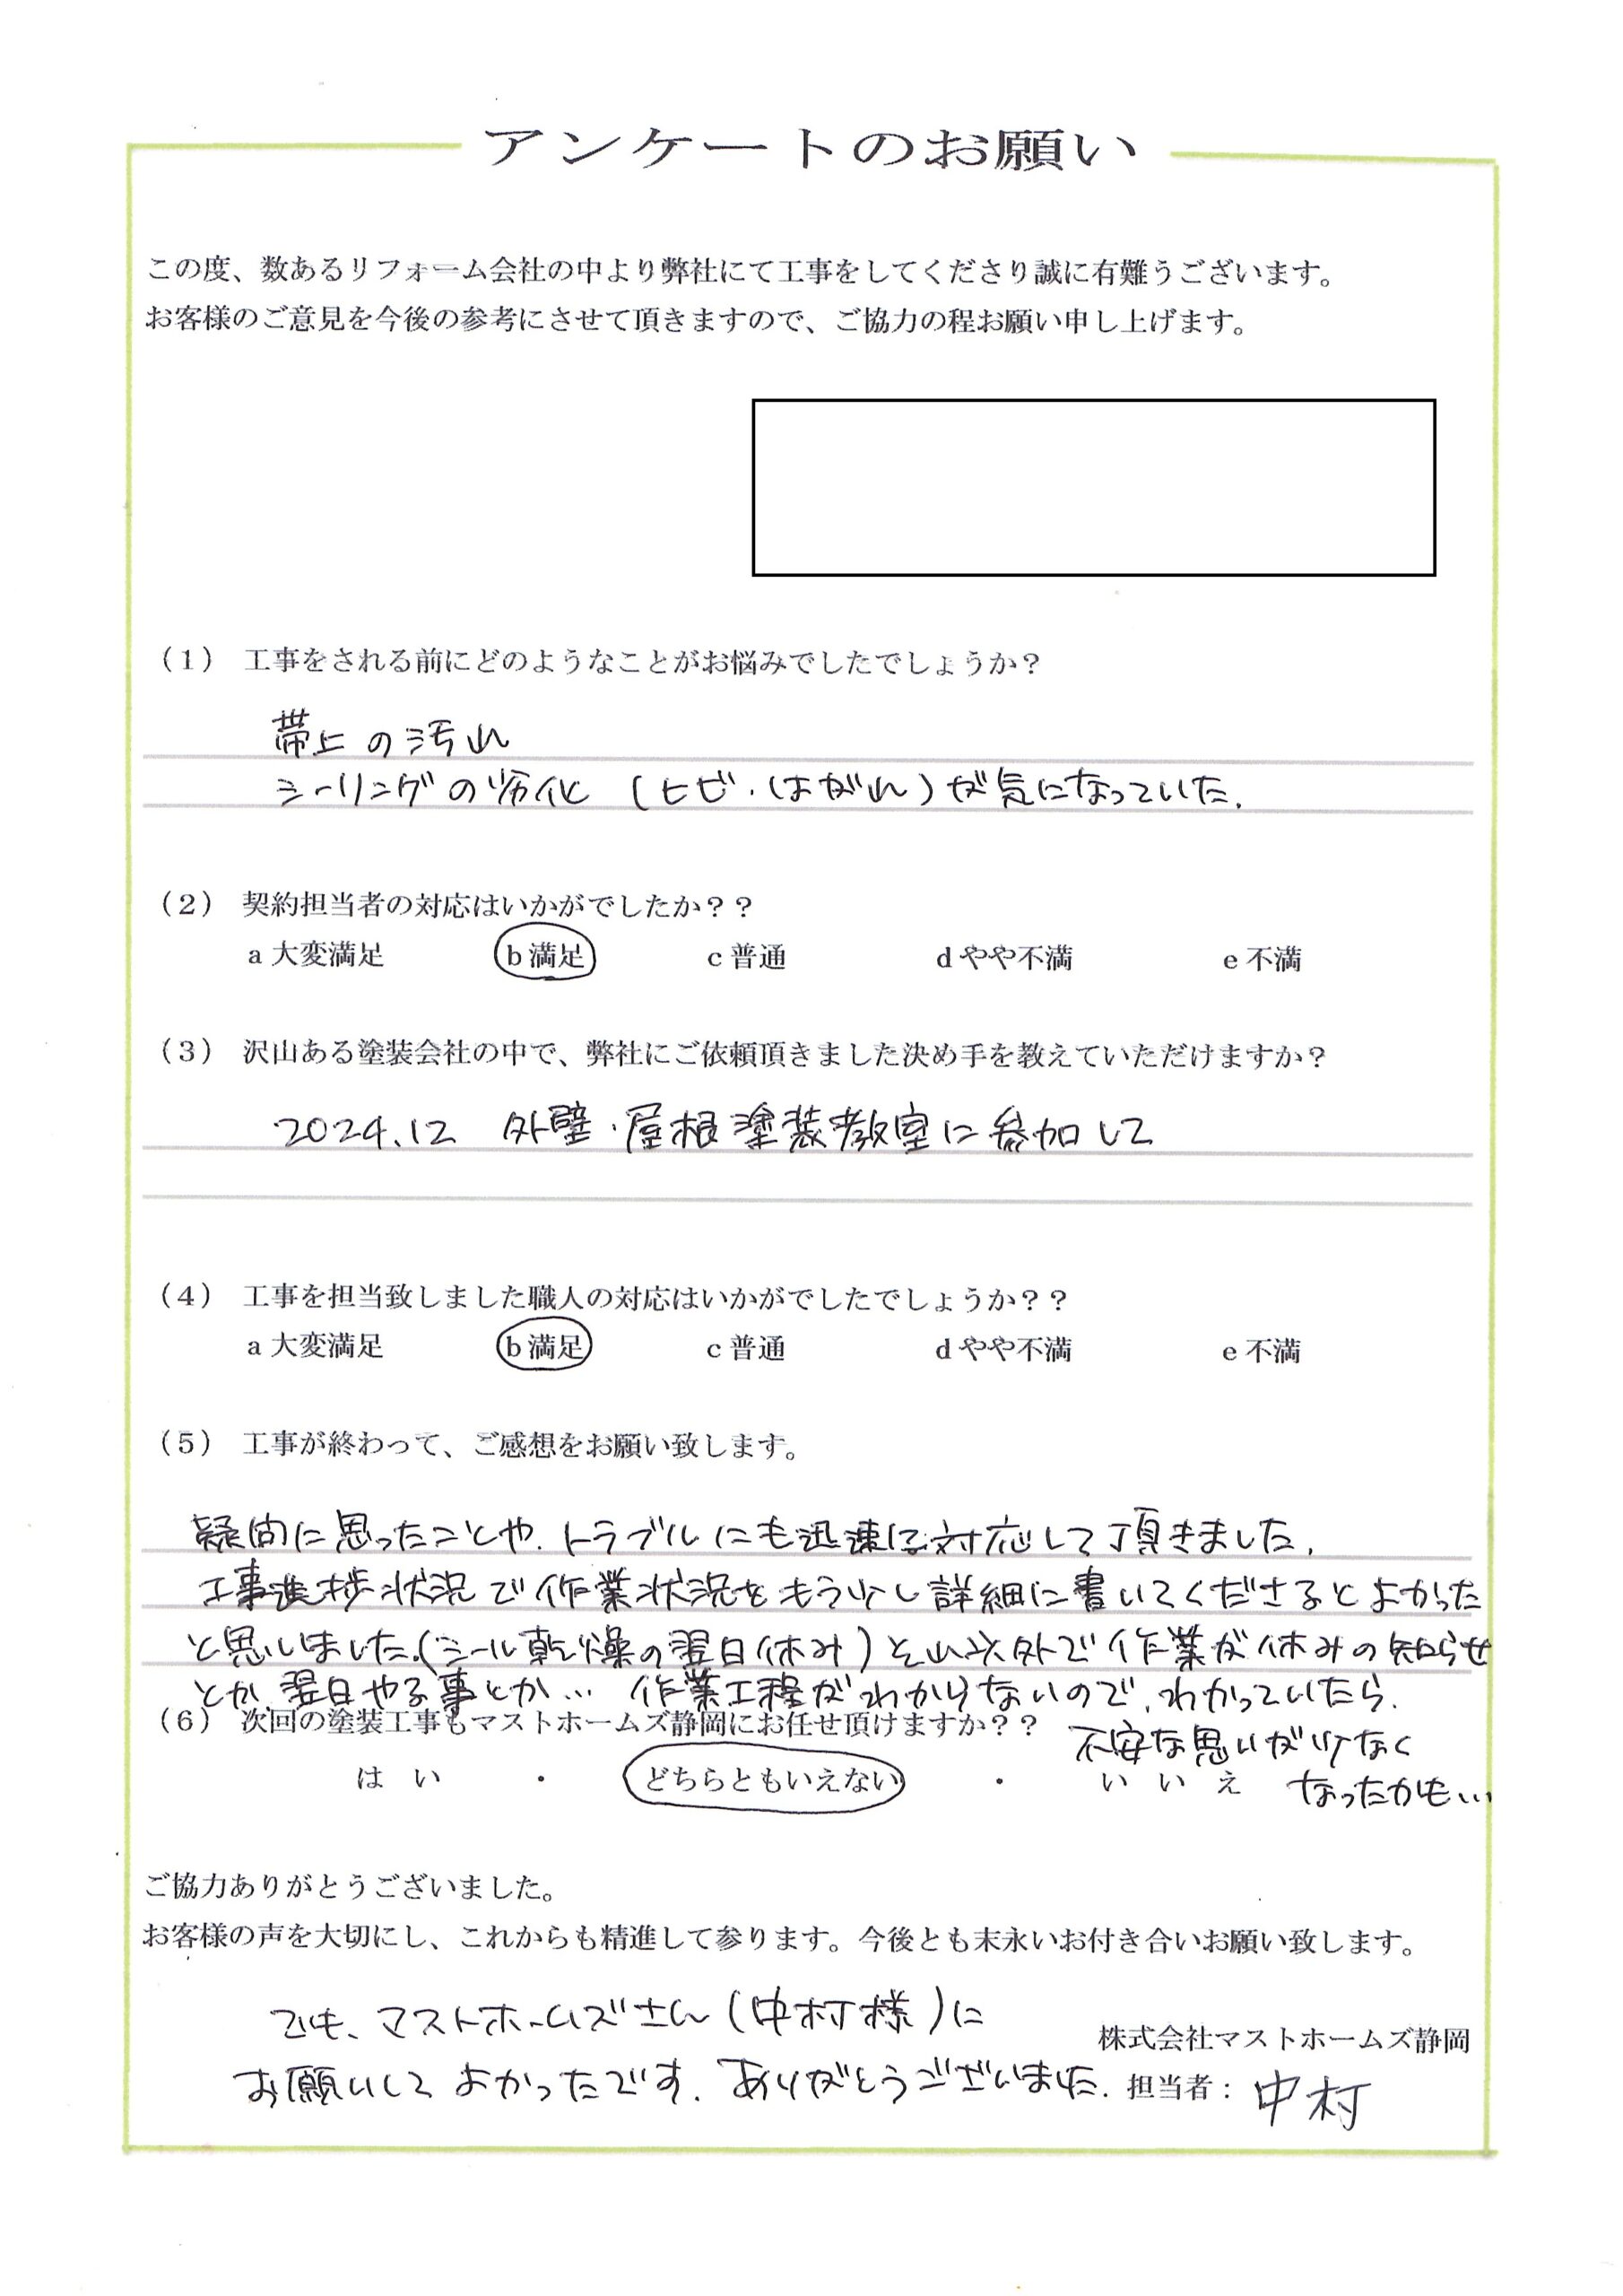 アンケートのお願い
この度、数あるリフォーム会社の中より弊社にて工事をしてくださり誠に有難うございます。
お客様のご意見を今後の参考にさせて頂きますので、ご協力の程お願い申し上げます。
（1） 工事をされる前にどのようなことがお悩みでしたでしょうか？
帯上の汚れ
シーリングの劣化（ヒビ・はがれ）が気になっていた.
（2） 契約担当者の対応はいかがでしたか？？
a 大変満足 b 満足 c 普通 d やや不満 e 不満
（3） 沢山ある塗装会社の中で、弊社にご依頼頂きました決め手を教えていただけますか？
2024.12 外壁・屋根塗装教室に参加して
（4） 工事を担当致しました職人の対応はいかがでしたでしょうか？？
a 大変満足 b 満足 c 普通 d やや不満 e 不満
（5） 工事が終わって、ご感想をお願い致します。
疑問に思ったことや、トラブルにも迅速に対応して頂きました.
工事進捗状況で作業状況をもう少し詳細に書いてくださるとよかった
と思いました.（シール乾燥の翌日休み）それ以外で作業が休みの知らせ
とか、翌日やる事とか… 作業工程がわからないので、わかっていたら、
不安な思いがなく
なったかも…
（6） 次回の塗装工事もマストホームズ静岡にお任せ頂けますか？？
はい ・ どちらともいえない ・ いいえ
ご協力ありがとうございました。
お客様の声を大切にし、これからも精進して参ります。今後とも末永いお付き合いお願い致します。
でも、マストホームズさん（中村様）に
お願いしてよかったです. ありがとうございました.
株式会社マストホームズ静岡
担当者：中村